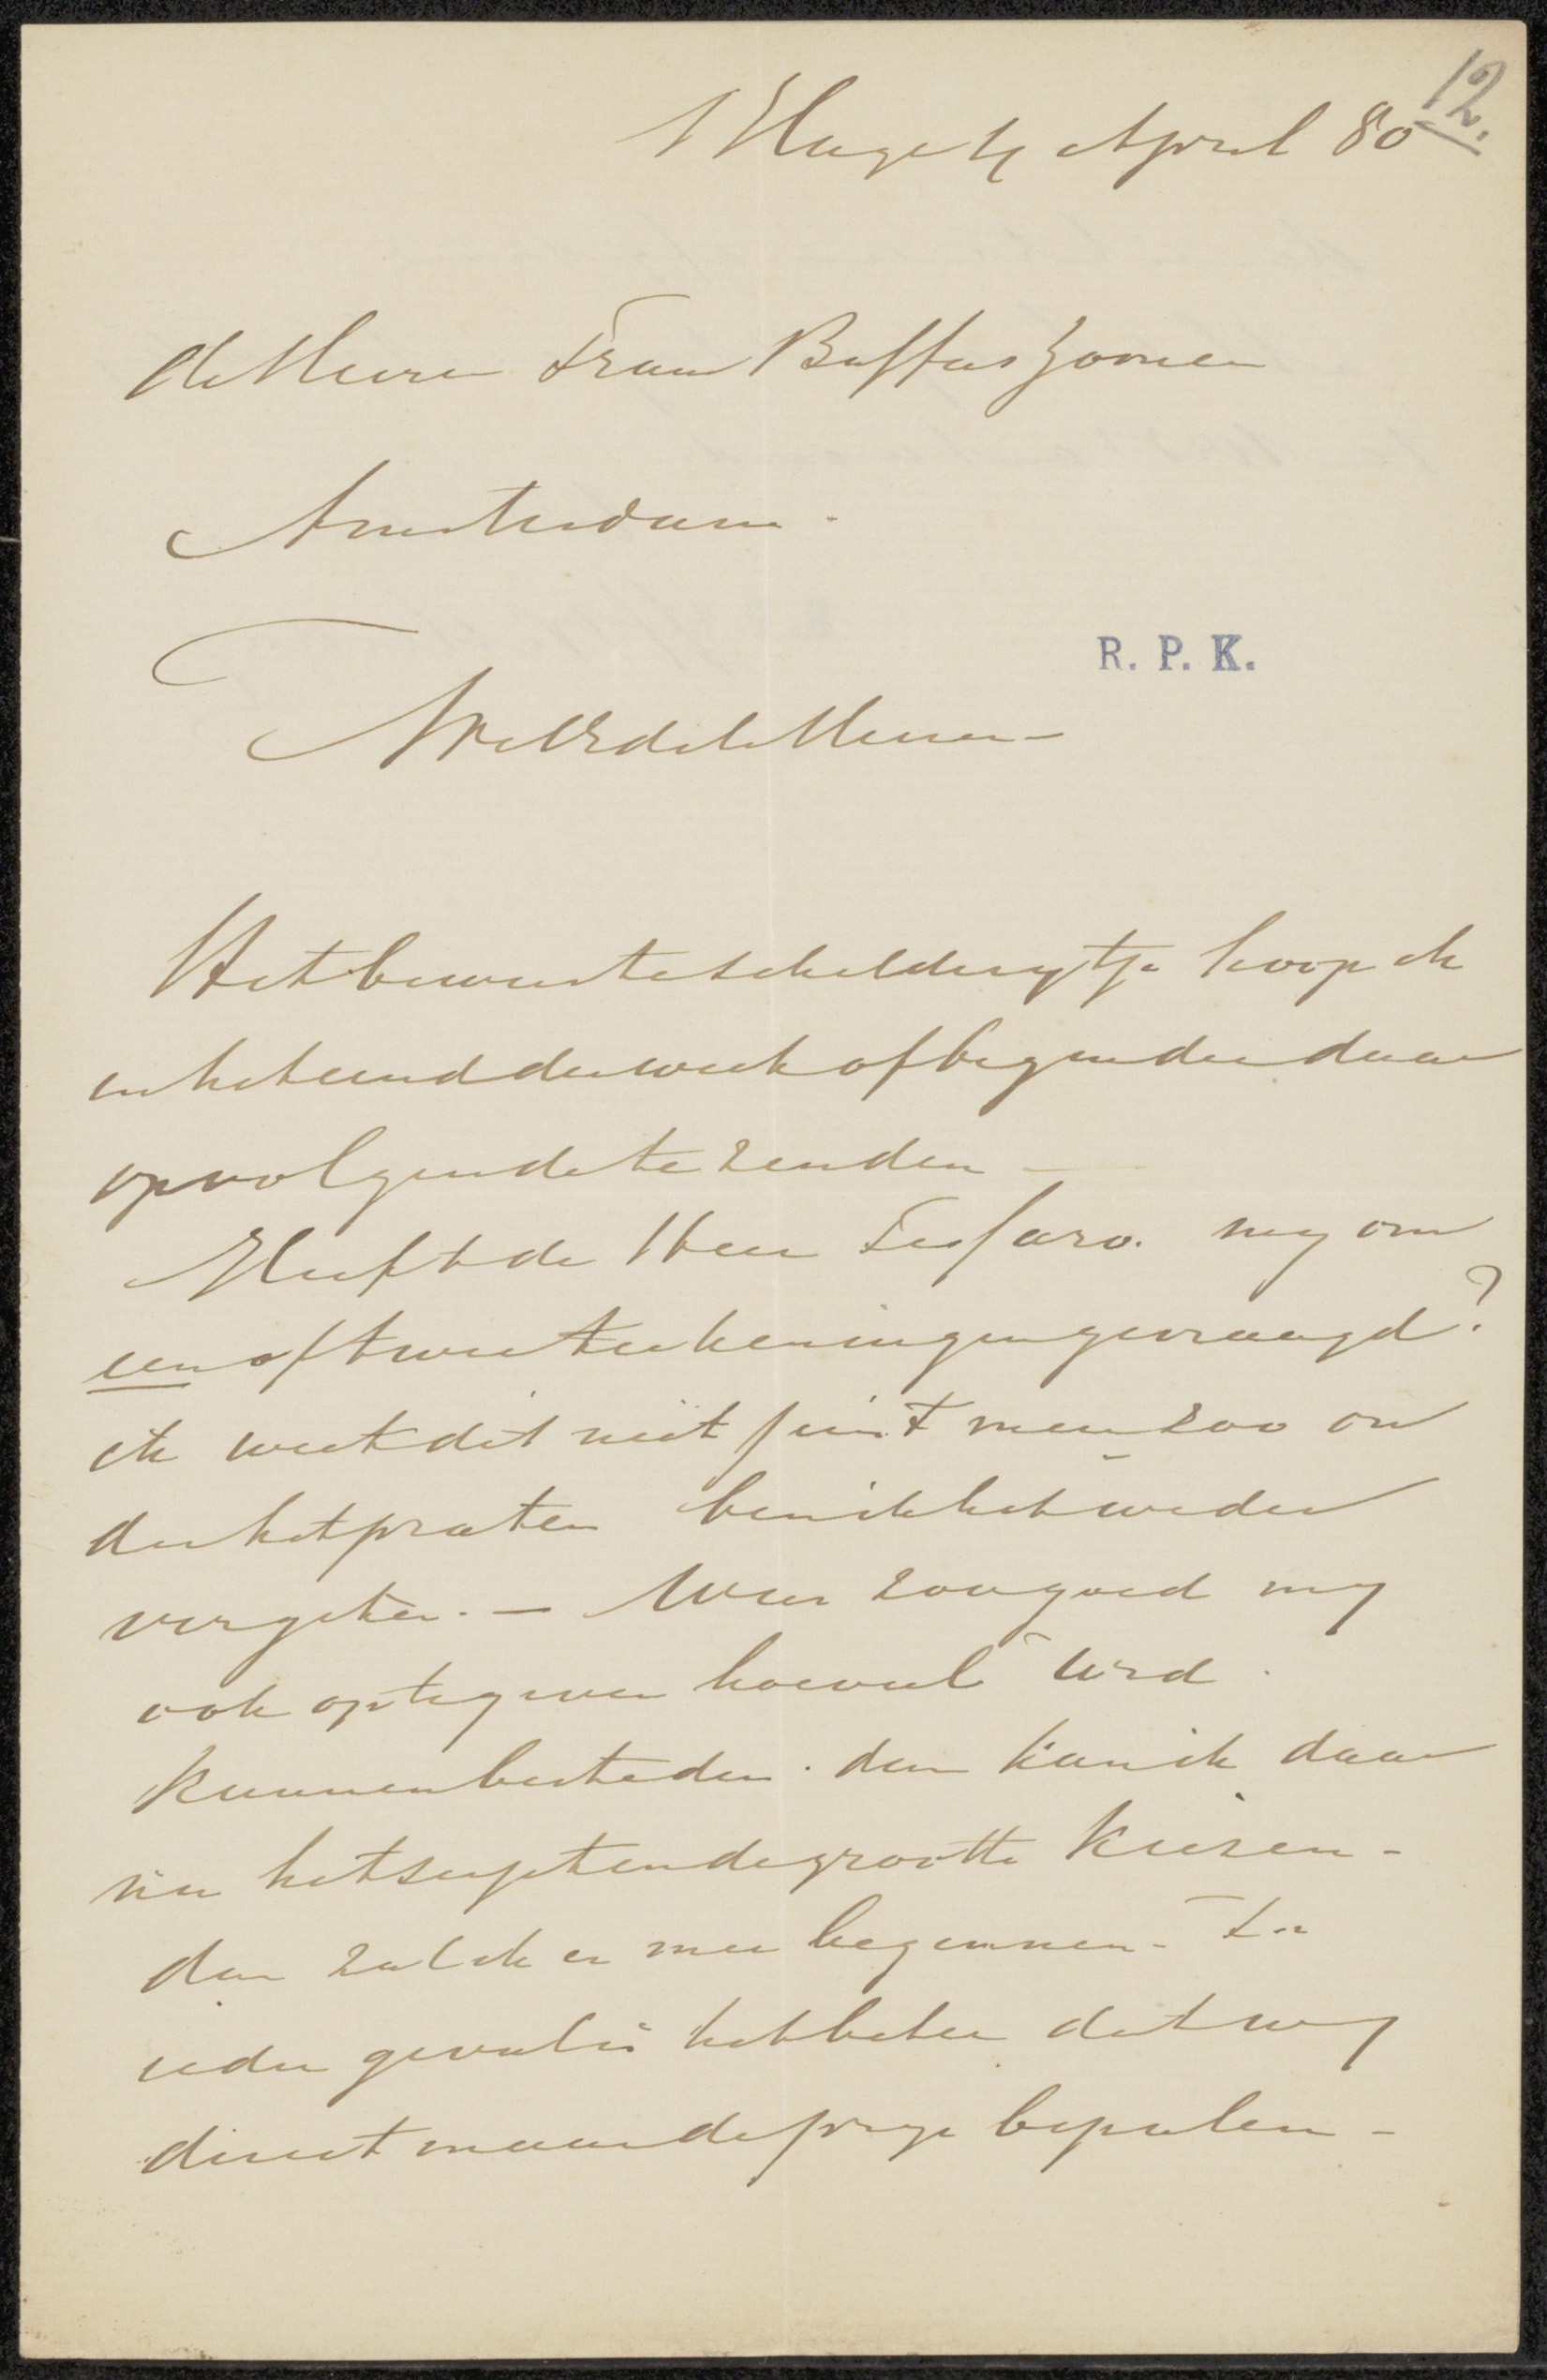 12.
's Hage 4 April 80
de Heeren Frans Buffa & Zoonen
Amsterdam.
R. P. K.
WelEdele Heeren
Het bewuste schilderytje hoop ik
in het eind der week of begin der daar
opvolgende te zenden —
Heeft de Heer my om
een of twee teekeningen gevraagd?
ik weet dit niet juist meer zoo on
der het praten ben ik het weder
vergeten. — Wees zoo goed my
ook op te geven hoeveel
kunnen besteden. dan kan ik daar
na het sujet en de grootte kiezen -
dan zal ik er mee beginnen - In
ieder geval is het beter dat wy
direct maar de prys bepalen -